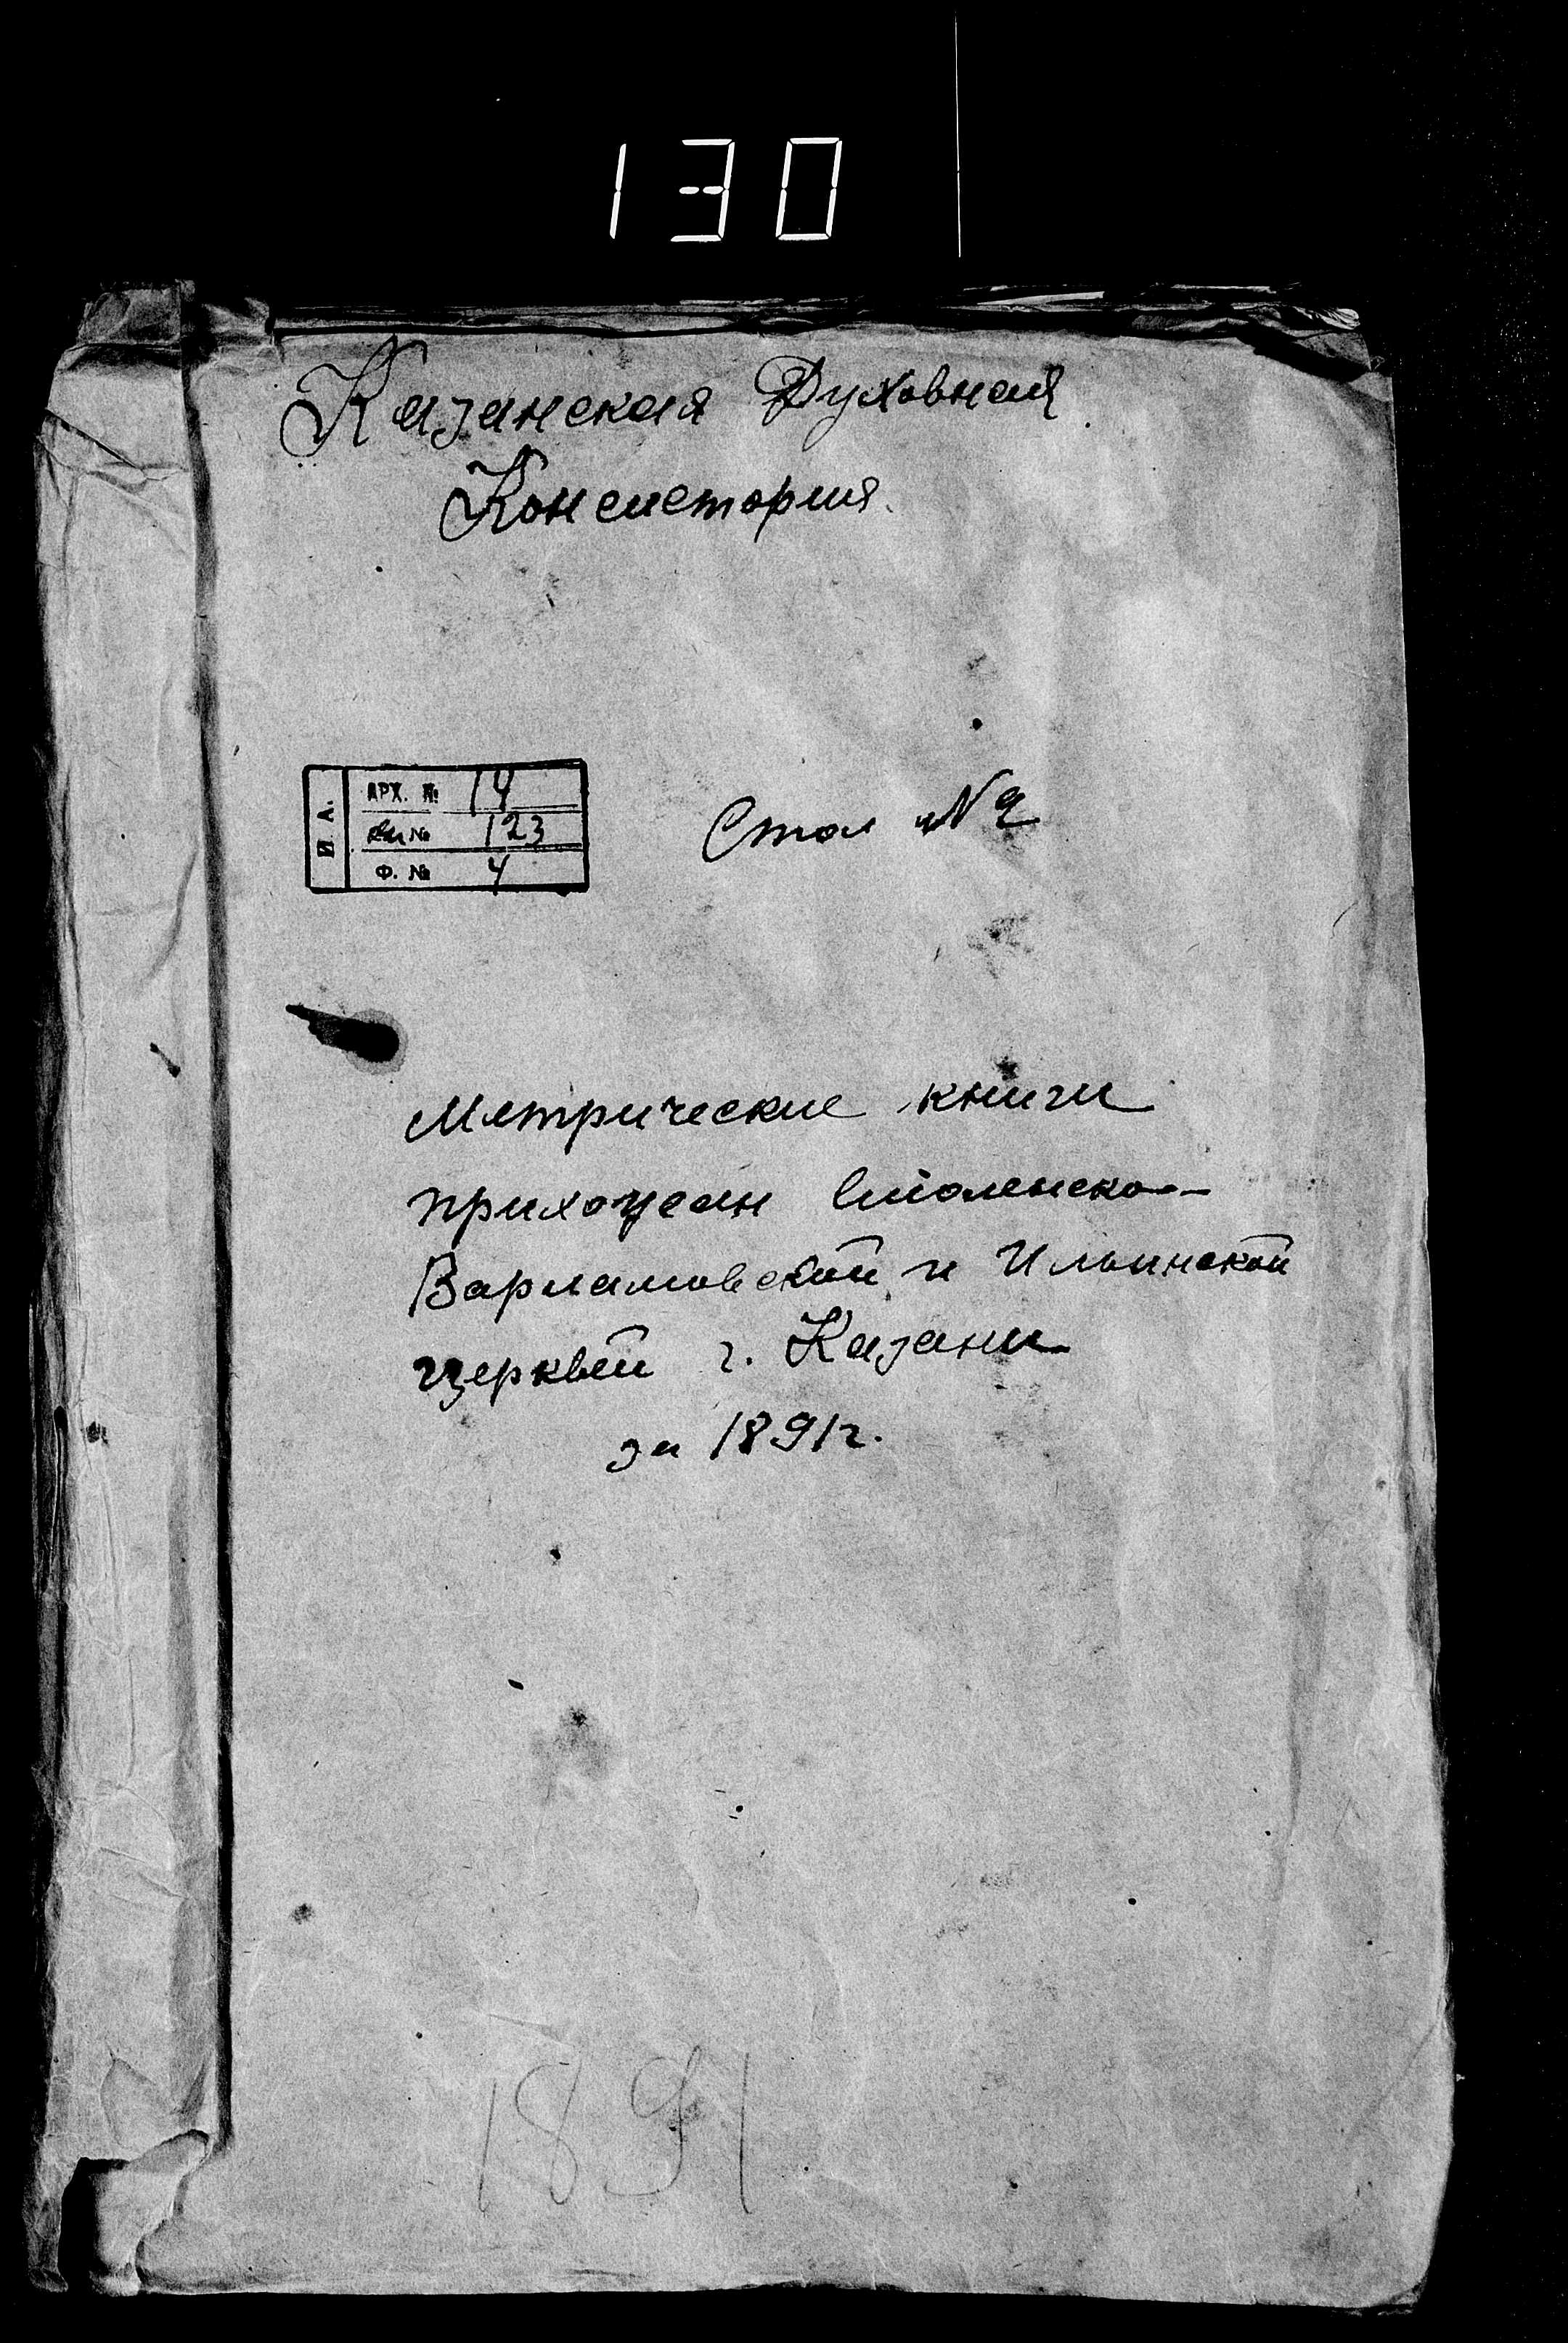 130
Казанская Духовная
Консистория.
И. А.
АРХ. № 14
№ 123
Ф. № 4
Стол №
Метрические книги
прихожан Смоленско-
Варламовской и Ильинской
церквей г. Казани
за 1891г.
1891